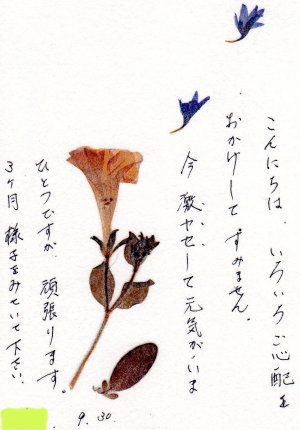 こんにちは、いろいろご心配を
おかけして すみません。
今 激ヤセして元気がいま
ひとつですが 頑張ります。
3ヶ月 様子をみていて下さい。
9.30.